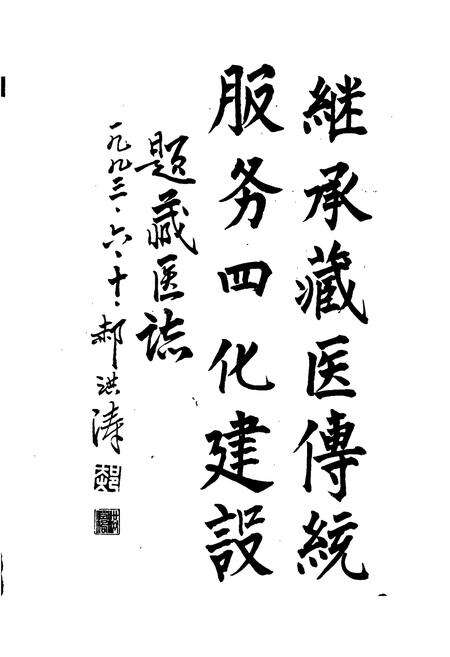 継承藏医傳統
服务四化建設
題藏医誌
一九九三·六·十·郝洪涛